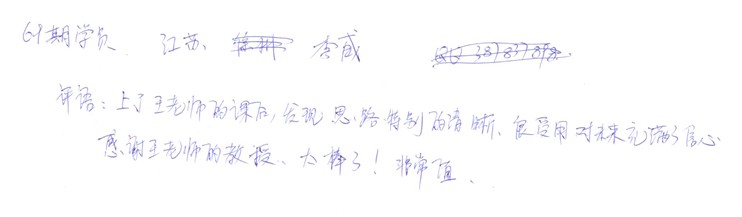 69期学员 江苏 李威
评语:上了王老师的课后,发现思路特别的清晰、很受用对未来充满了信心
感谢王老师的教授、太棒了!非常值、